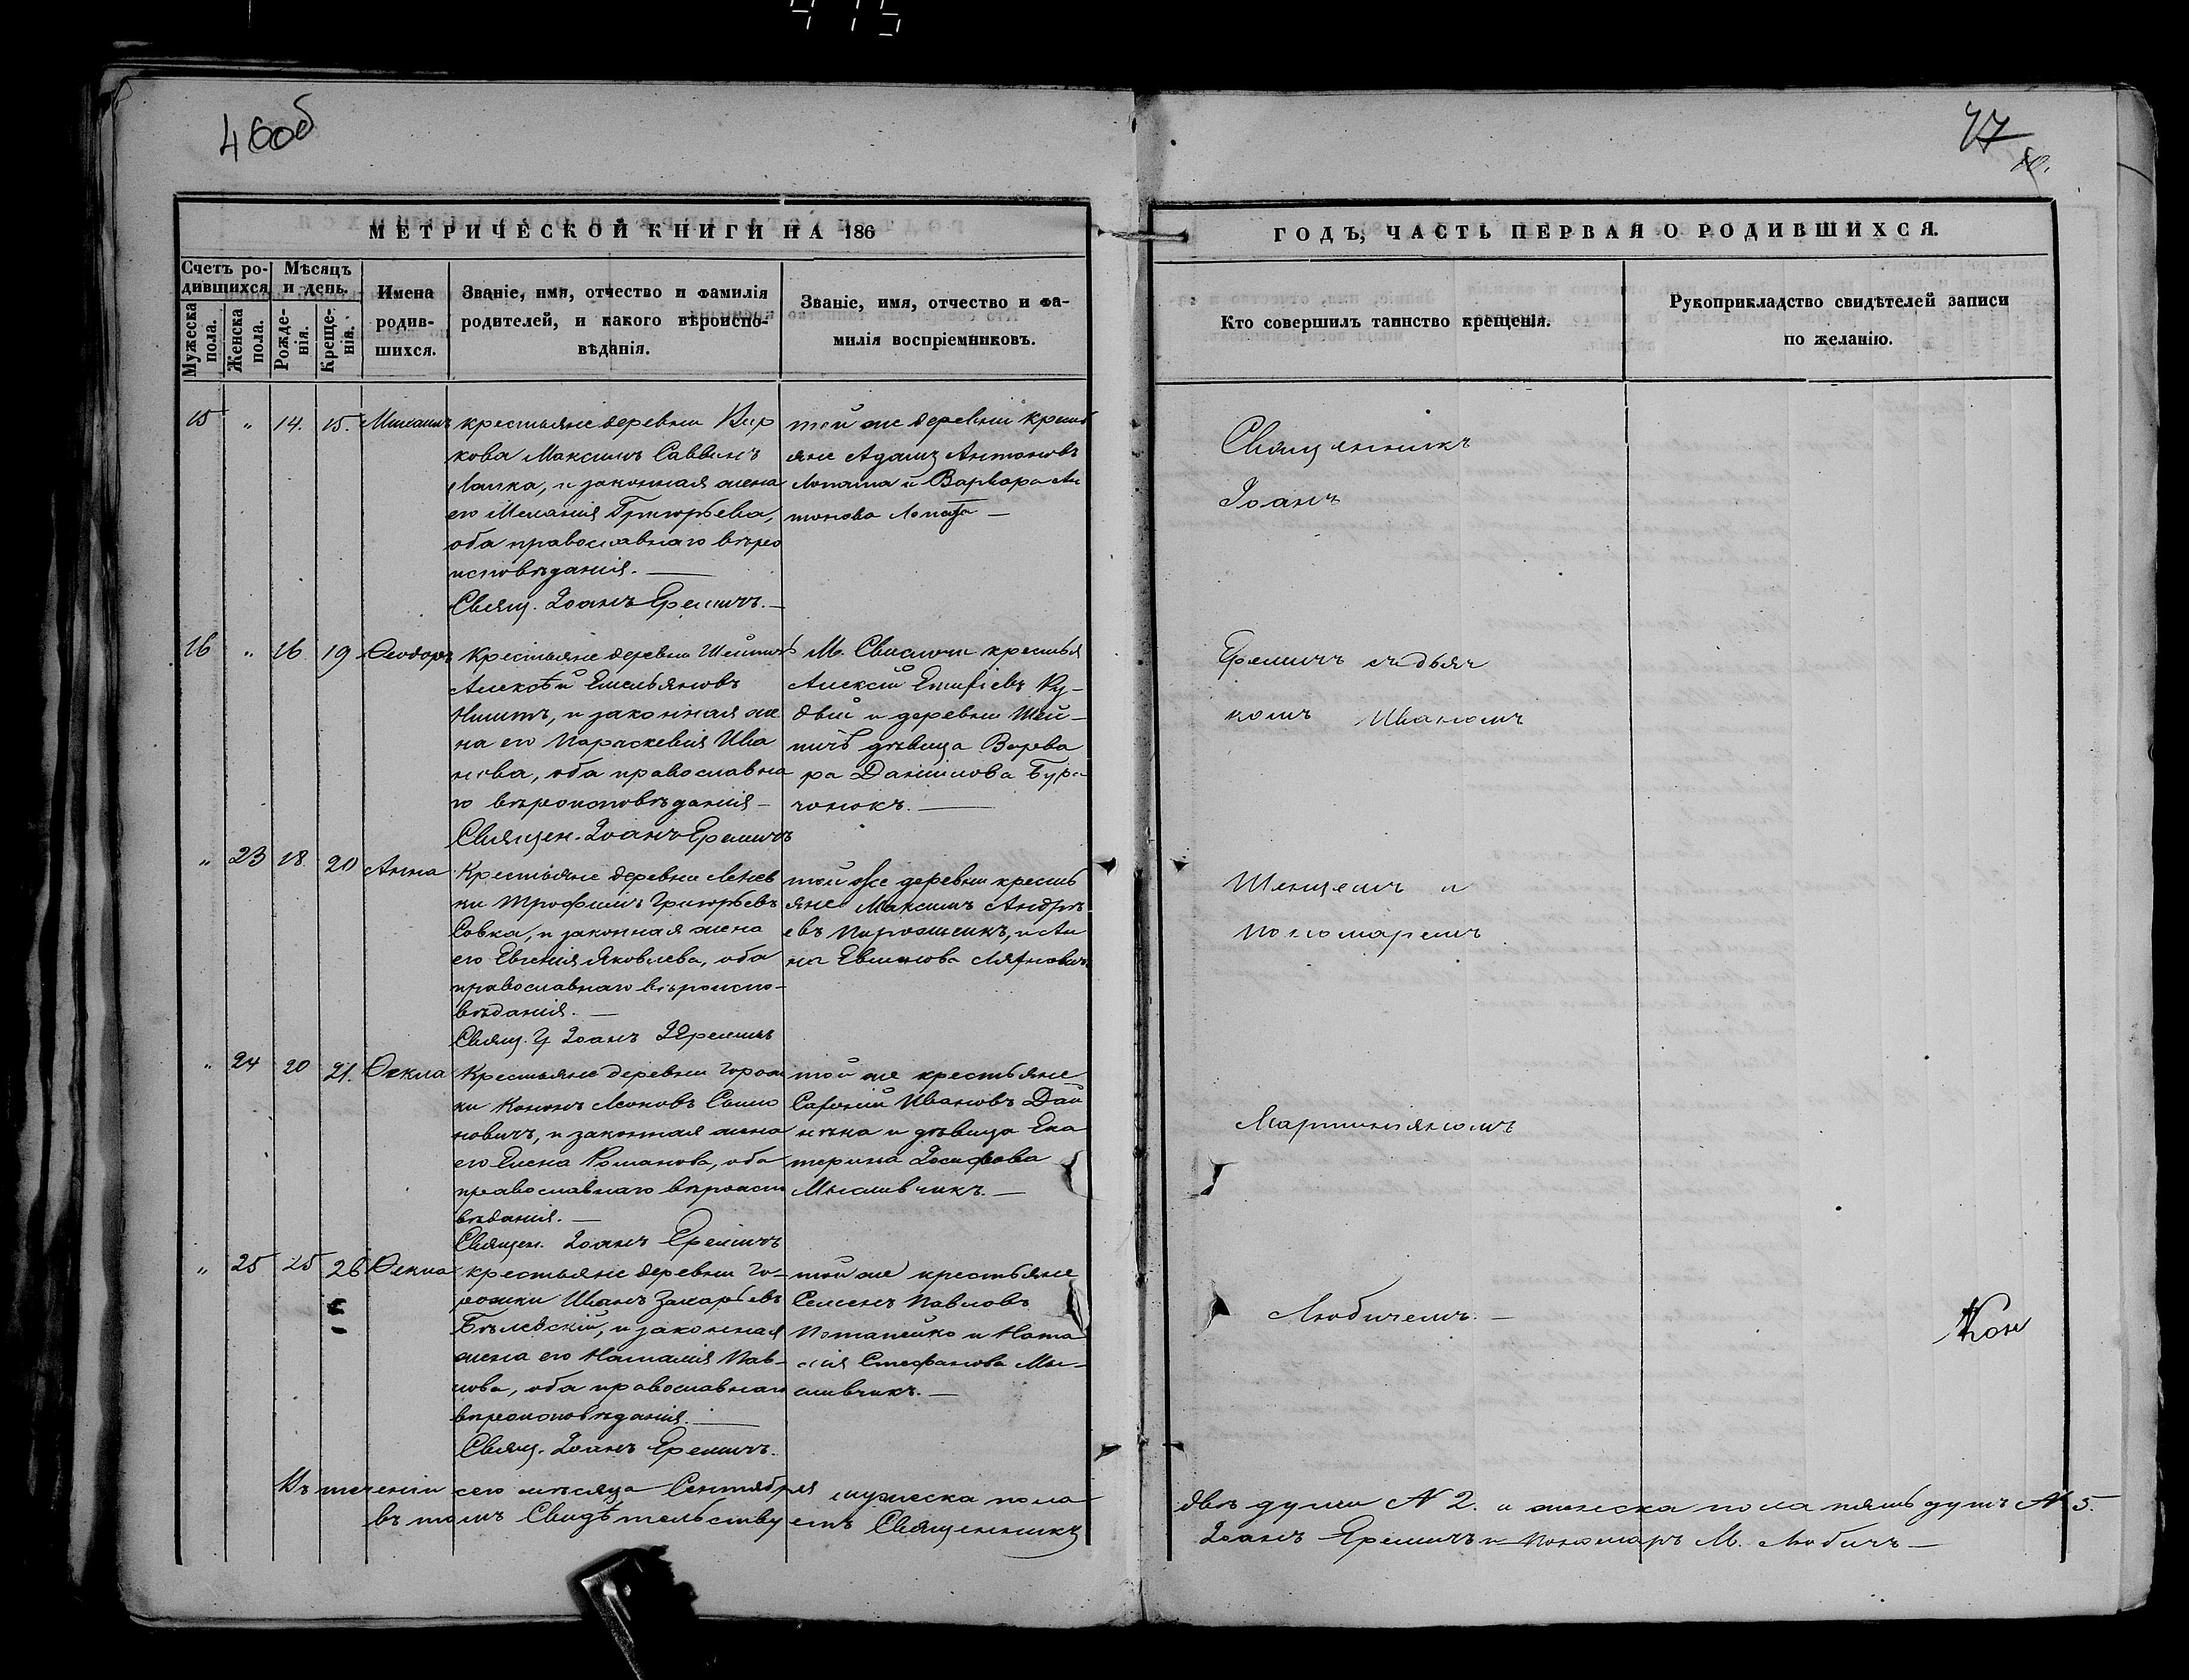 46об
47
МЕТРИЧЕСКОЙ КНИГИ НА 186
ГОДЪ, ЧАСТЬ ПЕРВАЯ О РОДИВШИХСЯ.
Счетъ родившихся
Мужеска пола.
Женска пола.
Мѣсяцъ и день.
Рожденія.
Крещенія.
Имена родившихся.
Званіе, имя, отчество и фамилія
родителей, и какого вѣроиспо-
вѣданія.
Званіе, имя, отчество и фа-
милія воспріемниковъ.
Кто совершилъ таинство крещенія.
Рукоприкладство свидѣтелей записи
по желанію.
15 " 14. 15. Михаилъ
крестьяне деревни Вир
кова Максимъ Саввинъ
и законная жена
его Меланія Григорьева,
оба православнаго вѣро
исповѣданія. —
Свящ. Іоанъ Еремичъ. —
той же деревни кресть
яне Адамъ Антоновъ
Лопата и Варвара Ан
тонова Лопата —
16 " 16 19 Ѳеодоръ
Крестьяне деревни
Алексѣй Емельяновъ
и законная же
на его Параскевія Ива
нова, оба православна
го вѣроисповѣданія —
Священ. Іоанъ Еремичъ
М. Свислочи крестья
Алексій
и деревни Шей-
дѣвица Варва
ра Даніилова Бура
чонокъ. —
" 23 18. 20 Анна
Крестьяне деревни
Трофимъ Григорьевъ
Совка, и законная жена
его Евгенія Яковлева, оба
православнаго вѣроиспо-
вѣданія. —
Свящ. Іоанъ Еремичъ
той же деревни кресть
яне Максимъ Андре
евъ и Ан
на
" 24 20 21. Ѳекла
Крестьяне деревни Горож
ки Кононъ
новичъ, и законная жена
его Елена Романова, оба
православнаго вѣроиспо
вѣданія. —
Священ. Іоанъ Еремичъ
той же крестьяне
Ивановъ Дай
нека и дѣвица Ека
терина Іосифова
Мысливчикъ. —
" 25 25 26 Ѳекла
крестьяне деревни Го-
рожки Иванъ Захарьевъ
Бѣлевскій, и законная
жена его Наталія Пав-
лова, оба православнаго
вѣроисповѣданія. —
Свящ. Іоанъ Еремичъ.
той же крестьяне
Семенъ Павловъ
Потапейко и Ната
лія Стефанова Мы-
сливчикъ. —
Священникъ
Іоанъ
Еремичъ съ дьяч
комъ Иваномъ
Шенцемъ и
пономаремъ
Мартиніяномъ
Любичемъ. —
Въ теченіи сего мѣсяца Сентября мужеска пола двѣ души N 2. и женска пола пять душъ N 5.
въ томъ Свидѣтельствуетъ Священникъ Іоанъ Еремичъ и Пономаръ М. Любичъ —